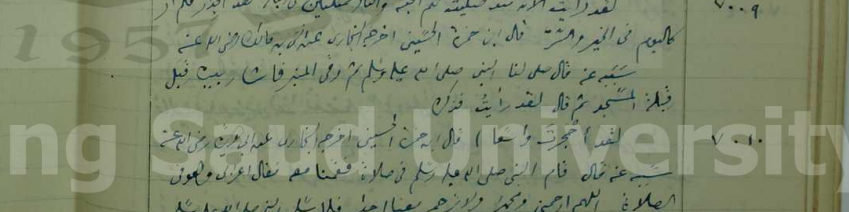 ٧٠٠٩ لقد رأيت الآن منذ صليت لكم الجنة والنار ممثلتين في قبلة هذا الجدار فلم أر
كاليوم في الخير والشر قال ابن حمزة الحسيني أخرجه البخاري عن أنس بن مالك رضي الله عنه
سببه عنه قال صلى لنا النبي صلى الله عليه وسلم ثم رقى المنبر فأشار بيديه قبل
قبلة المسجد ثم قال لقد رأيت فذكره
٧٠١٠ لقد (حجرت واسعا) قال ابن حمزة الحسيني أخرجه البخاري عن أبي هريرة رضي الله عنه
سببه عنه قال قام النبي صلى الله عليه وسلم في صلاة فقمنا معه فقال أعرابي وهو في
الصلاة اللهم ارحمني ومحمدا ولا ترحم معنا أحدا فلما سلم النبي صلى الله عليه وسلم
ng Saud University
1957